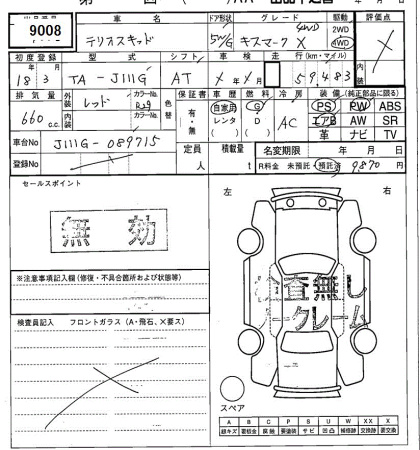 9008
車名 ドア形状 グレード 駆動 評価点
テリオスキッド 5D/G キスマーク X 4WD 2WD 4WD
初度登録 型式 シフト 車検 走行(km・マイル) 内装
18 3 TA-J111G AT X年X月 59,483
排気量 外装 カラーNo. 色替 保証書 車歴 燃料 冷房 装備(純正部品に限る)
660c.c. レッド 有・無 自家用 G AC PS PW ABS
内装 カラーNo. レンタ D エアB AW SR
( ) ( ) 革 ナビ TV
車台No J111G-089715 定員 積載量 名変期限 年 月 日
登録No 人 t R料金 未預託・預託済 9870円
セールスポイント 左 右
無効
※注意事項記入欄(修復・不具合箇所および状態等)
査無し
ークレーム
検査員記入 フロントガラス(A・飛石、X要ス)
スペア
A B C P S U W X XX